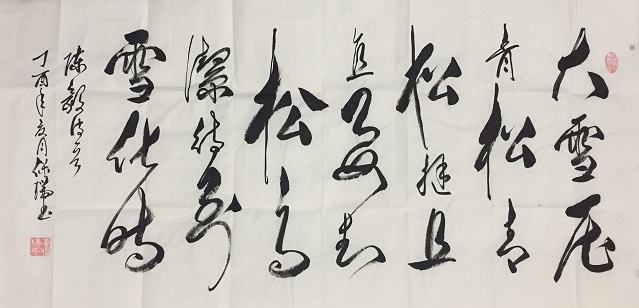 大雪压
青松青
松挺且
直要知
松高
潔待到
雪化时
陈毅诗
丁酉年夏月书